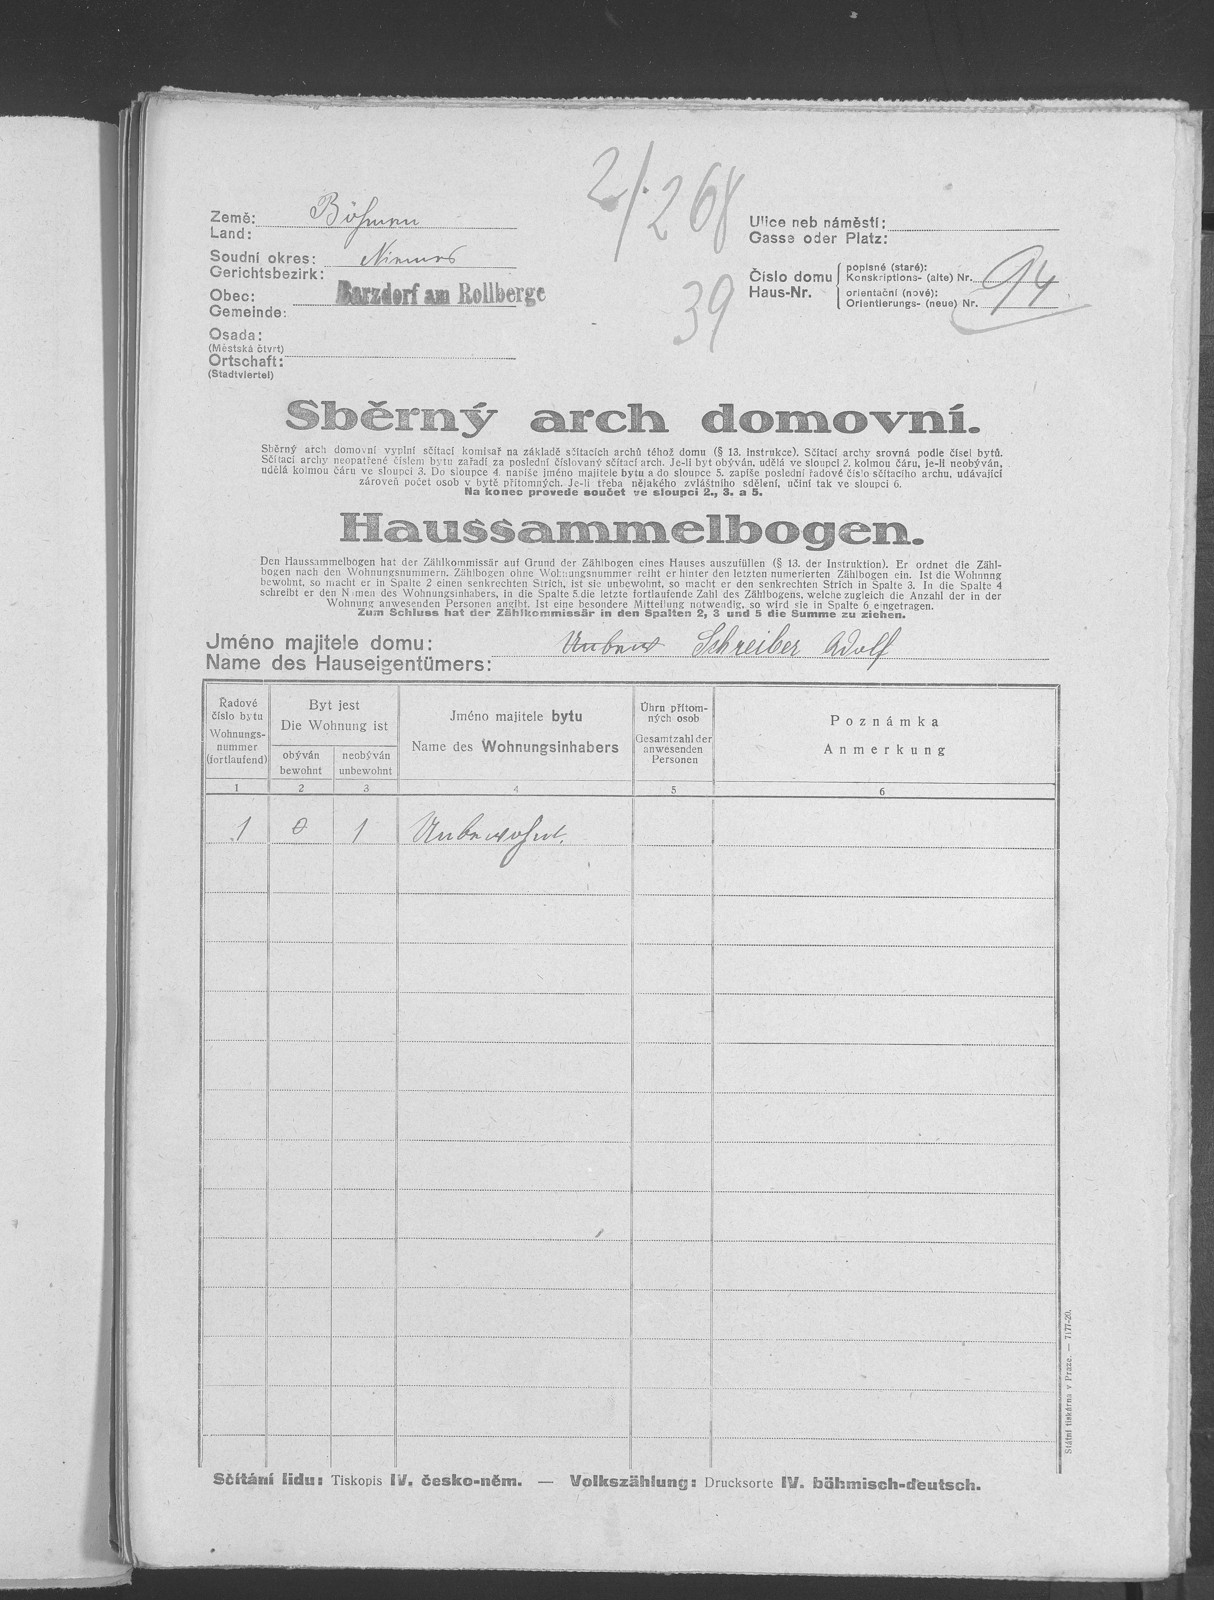 2/268
39
Země: Böhmen
Land:
Soudní okres: Niemes
Gerichtsbezirk:
Obec: Barzdorf am Rollberge
Gemeinde:
Osada:
(Městská čtvrt)
Ortschaft:
(Stadtviertel)
Ulice neb náměstí:
Gasse oder Platz:
Číslo domu
Haus-Nr.
popisné (staré):
Konskriptions- (alte) Nr. 94
orientační (nové):
Orientierungs- (neue) Nr.
Sběrný arch domovní.
Sběrný arch domovní vyplní sčítací komisař na základě sčítacích archů téhož domu (§ 13. instrukce). Sčítací archy srovná podle čísel bytů.
Sčítací archy neopatřené číslem bytu zařadí za poslední číslovaný sčítací arch. Je-li byt obýván, udělá ve sloupci 2. kolmou čáru, je-li neobýván,
udělá kolmou čáru ve sloupci 3. Do sloupce 4. napíše jméno majitele bytu a do sloupce 5. zapíše poslední řadové číslo sčítacího archu, udávající
zároveň počet osob v bytě přítomných. Je-li třeba nějakého zvláštního sdělení, učiní tak ve sloupci 6.
Na konec provede součet ve sloupci 2., 3. a 5.
Haussammelbogen.
Den Haussammelbogen hat der Zählkommissär auf Grund der Zählbogen eines Hauses auszufüllen (§ 13. der Instruktion). Er ordnet die Zähl-
bogen nach den Wohnungsnummern. Zählbogen ohne Wohnungsnummer reiht er hinter den letzten numerierten Zählbogen ein. Ist die Wohnnng
bewohnt, so macht er in Spalte 2 einen senkrechten Strich, ist sie unbewohnt, so macht er den senkrechten Strich in Spalte 3. In die Spalte 4
schreibt er den Namen des Wohnungsinhabers, in die Spalte 5.die letzte fortlaufende Zahl des Zählbogens, welche zugleich die Anzahl der in der
Wohnung anwesenden Personen angibt. Ist eine besondere Mitteilung notwendig, so wird sie in Spalte 6 eingetragen.
Zum Schluss hat der Zählkommissär in den Spalten 2, 3 und 5 die Summe zu ziehen.
Jméno majitele domu: Schreiber Adolf
Name des Hauseigentümers:
Řadové
číslo bytu
Wohnungs-
nummer
(fortlaufend)
Byt jest
Die Wohnung ist
obýván
bewohnt
neobýván
unbewohnt
Jméno majitele bytu
Name des Wohnungsinhabers
Úhrn přítom-
ných osob
Gesamtzahl der
anwesenden
Personen
Poznámka
Anmerkung
1 2 3 4 5 6
1 0 1 Unbewohnt.
Státní tiskárna v Praze. — 7177-20.
Sčítání lidu: Tiskopis IV. česko-něm. — Volkszählung: Drucksorte IV. böhmisch-deutsch.